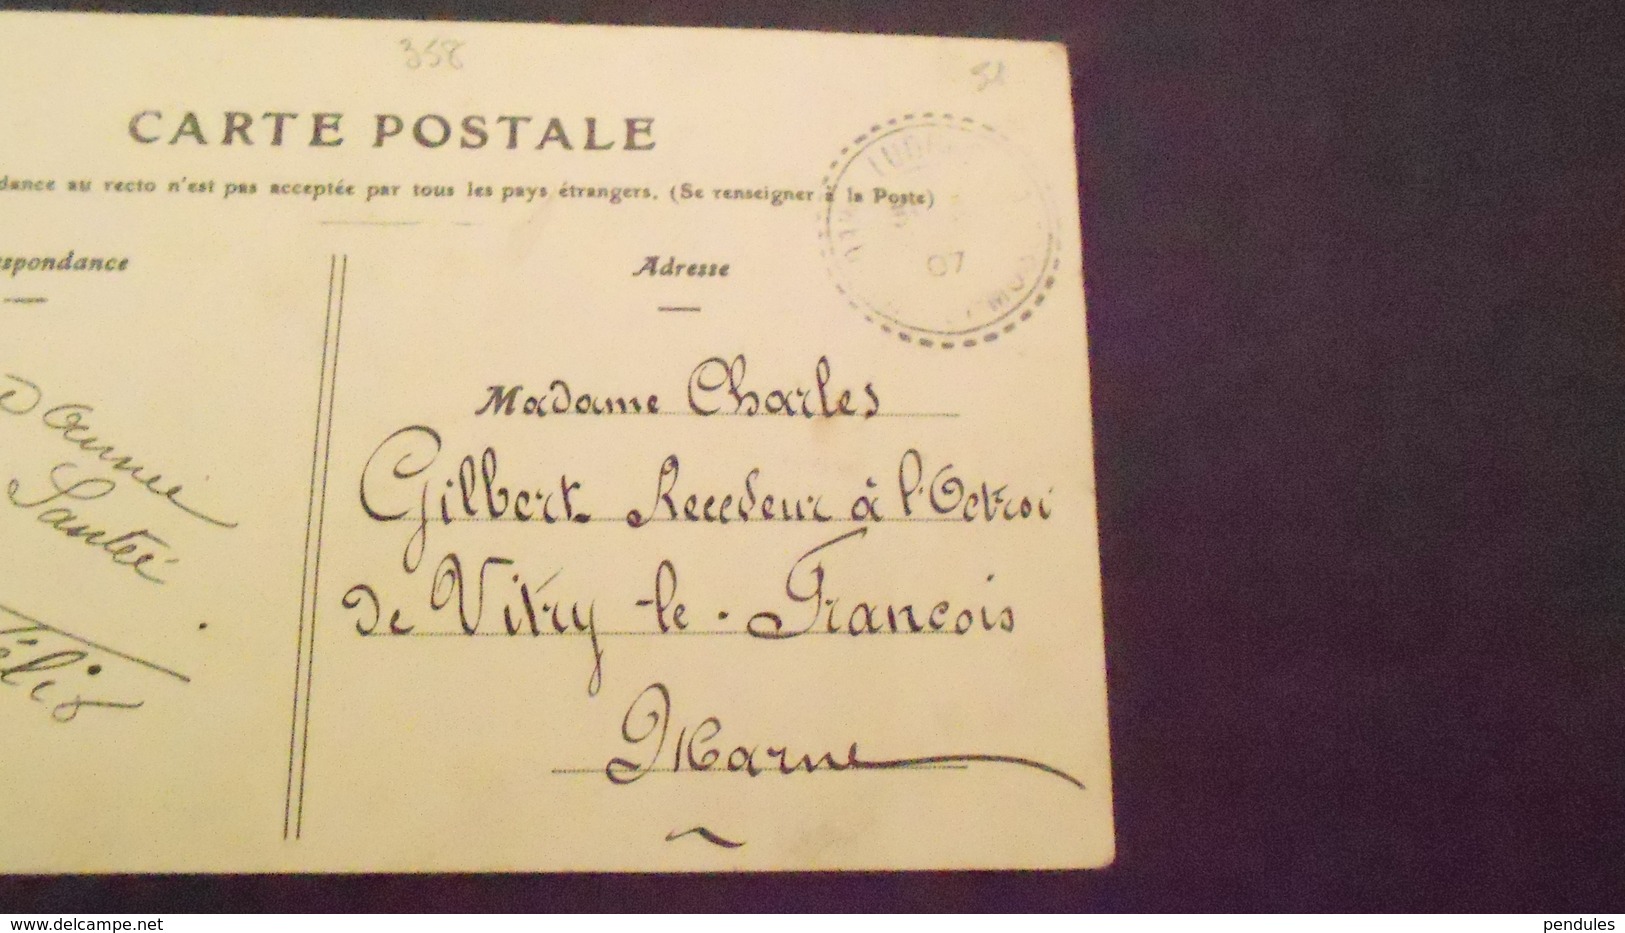 358
51
CARTE POSTALE
dance au recto n'est pas acceptée par tous les pays étrangers. (Se renseigner à la Poste)
spondance
Adresse
07
Madame Charles
Gilbert Receveur à l'Octroi
de Vitry-le-François
Marne
D'année
Santée
Félix
delcampe.net
pendules